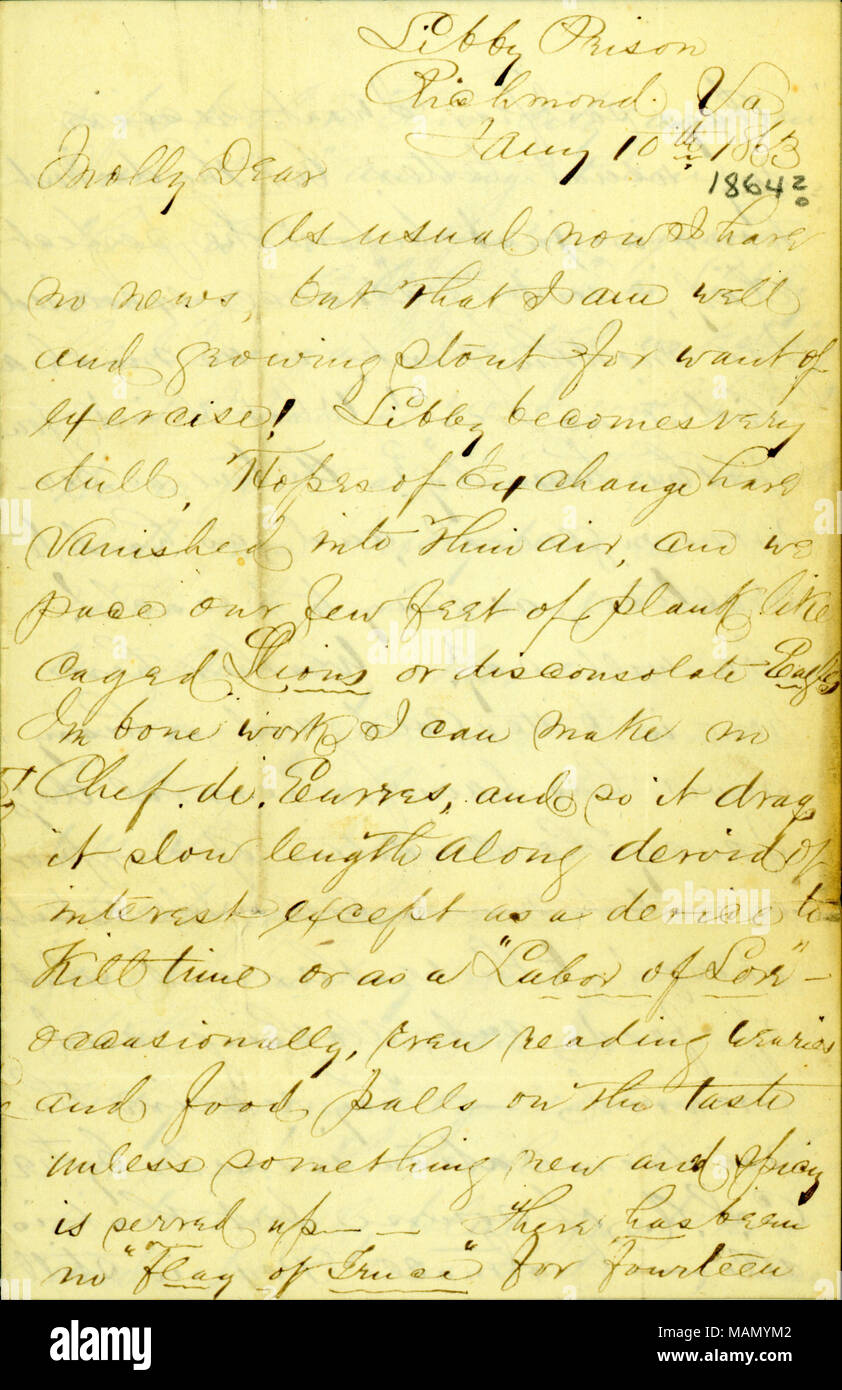 Libby Prison
Richmond. Va
Jany 10th 1863
1864?
Molly Dear
As usual now I have
no news, but that I am well
and growing stout for want of
exercise! Libby becomes very
dull, Hopes of Exchange have
vanished into thin air, and we
pace our few feet of plank like
caged Lions or disconsolate Eagles
In bone work I can make no
Chef. de. Euvres, and so it drags
it slow length along devoid of
interest except as a device to
Kill time or as a "Labor of Love" -
occasionally, even reading wearies
and food palls on the taste
unless something new and spicy
is served up - - There has been
no "Flag of Truce" for fourteen
alamy
Image ID: MAMYM2
www.alamy.com